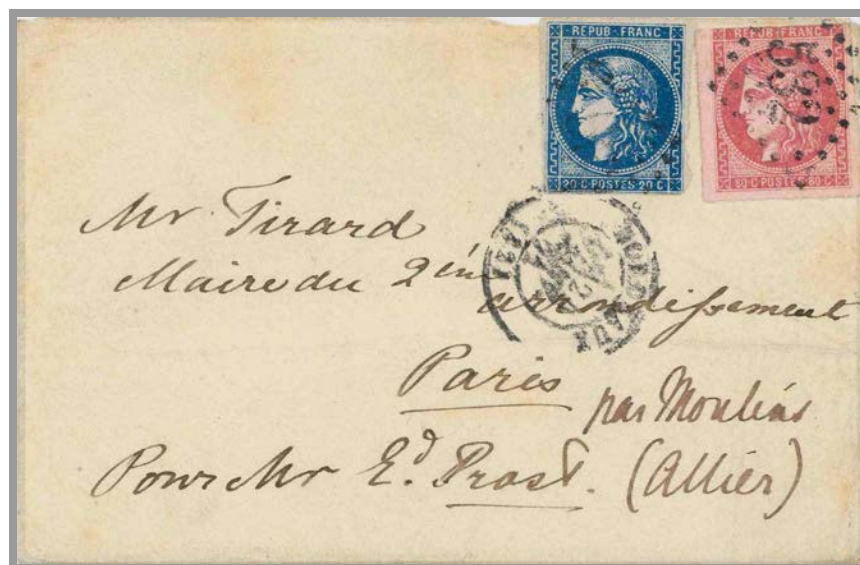 REPUB·FRANC
20 C·POSTES 20 C
REPUB·FRANC
80 C·POSTES 80 C
Mr. Tirard
Maire du 2ème
arrondissement
Paris
par Moulins
Pour Mr Ed. Prost. (Allier)